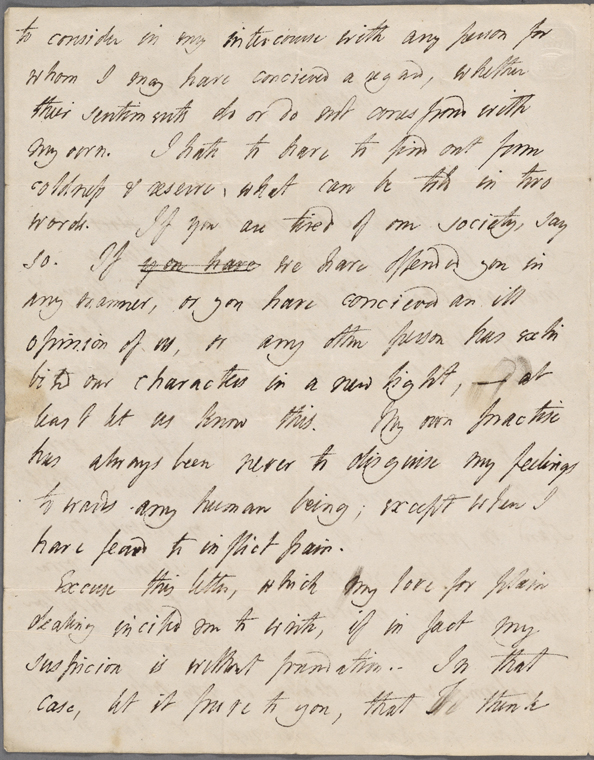 to consider in my intercourse with any person for
whom I may have concieved a regard, whether
their sentiments do or do not correspond with
my own. I hate to have to find out from
coldness & reserve, what can be told in two
words. If you are tired of our society, say
so. If you have we have offended you in
any manner, or you have concieved an ill
opinion of us, or any other person has exhi
bited our characters in a new light, — at
least let us know this. My own practise
has always been never to disguise my feelings
towards any human being; except when I
have feared to inflict pain.
Excuse this letter, which my love for plain
dealing incited me to write, if in fact my
suspicion is without foundation.. In that
case, let it prove to you, that I think